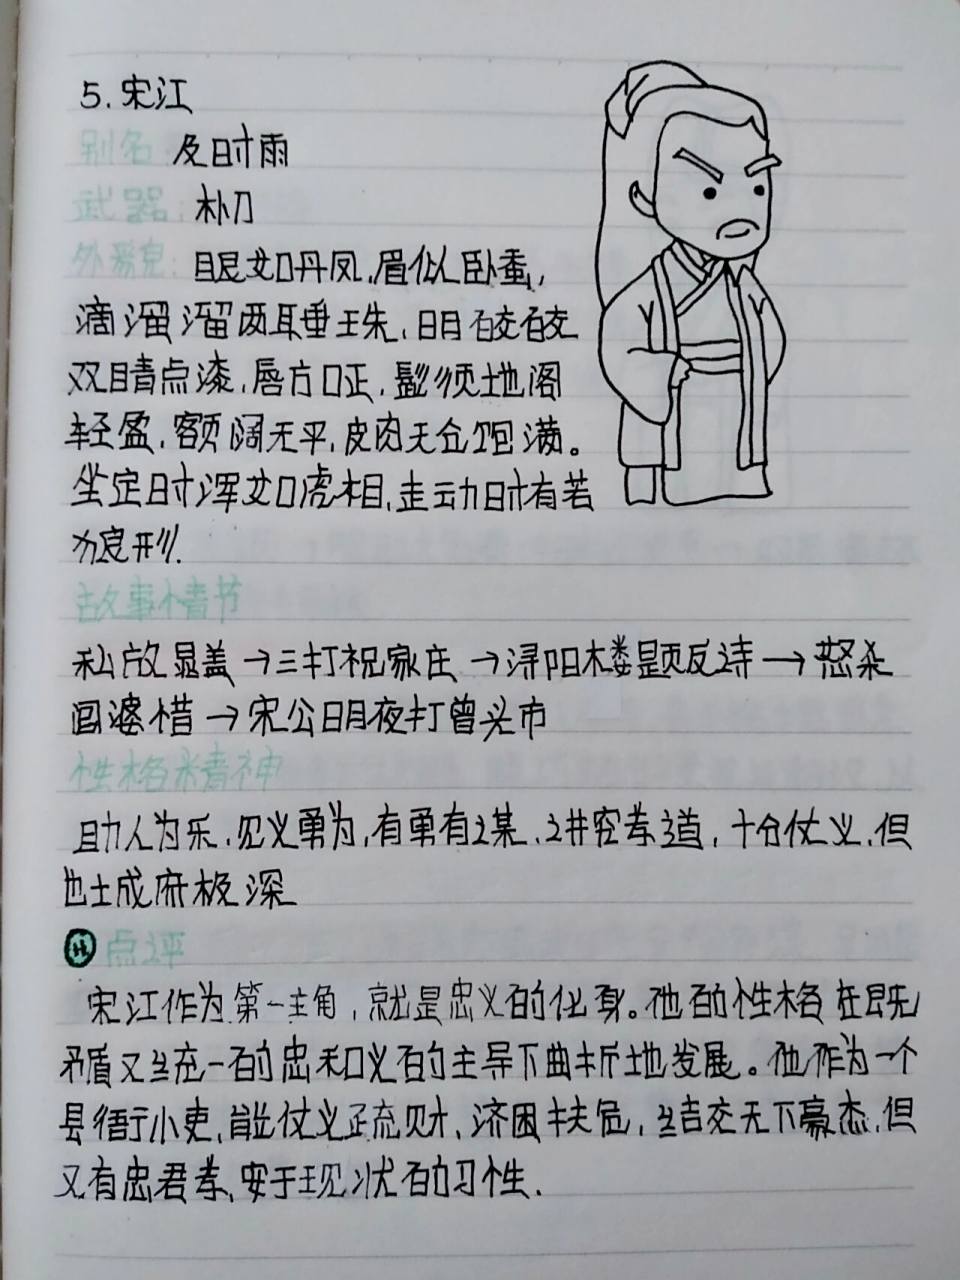 5.宋江
别名 及时雨
武器：朴刀
外貌：眼如丹凤，眉似卧蚕，
滴溜溜两耳垂珠，明皎皎
双睛点漆，唇方口正，髭须地阁
轻盈，额阔顶平，皮肉天仓饱满。
坐定时浑如虎相，走动时有若
狼形。
故事情节
私放晁盖→三打祝家庄→浔阳楼题反诗→怒杀
阎婆惜→宋公明夜打曾头市
性格精神
助人为乐，见义勇为，有勇有谋，讲究孝道，十分仗义，但
也城府极深
点评
宋江作为第一主角，就是忠义的化身。他的性格在既
矛盾又统一的忠和义的主导下曲折地发展。他作为一个
县衙小吏，能仗义疏财、济困扶危，结交天下豪杰，但
又有忠君孝，安于现状的习性.